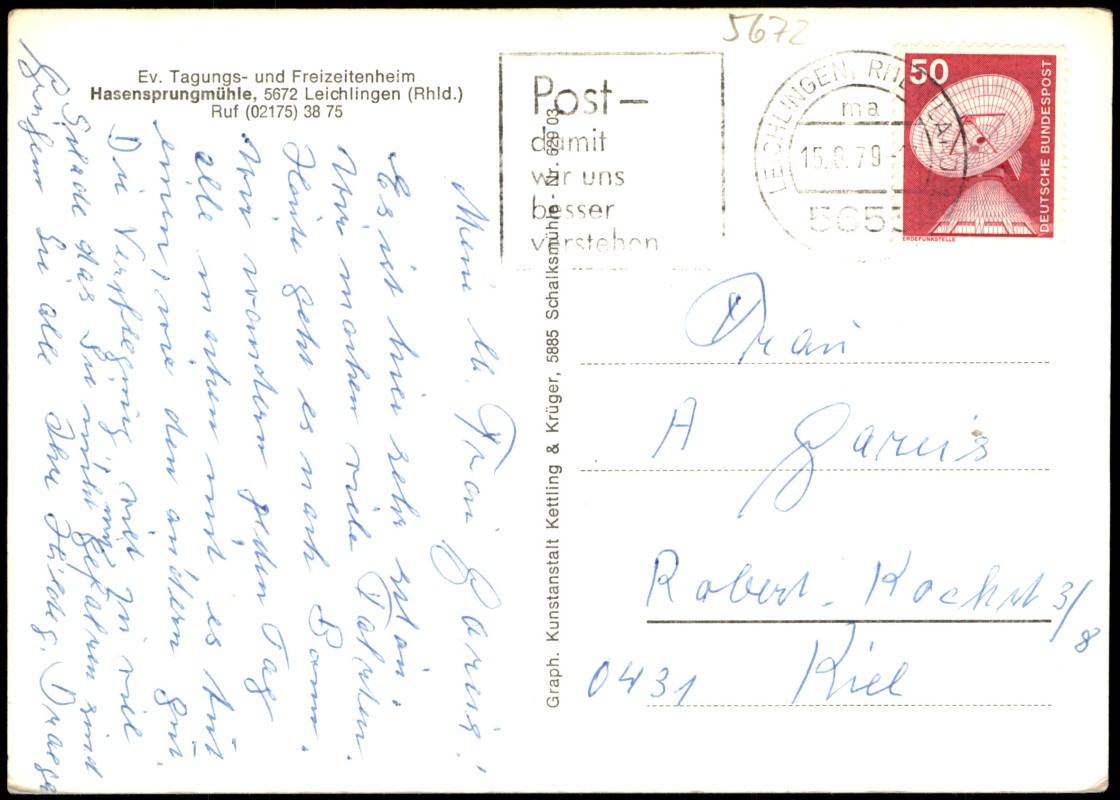 5672
Ev. Tagungs- und Freizeitenheim
Hasensprungmühle, 5672 Leichlingen (Rhld.)
Ruf (02175) 38 75
Post –
damit
wir uns
besser
verstehen
LEICHLINGEN, RHEINLAND
ma
15.8.79
5653
50
DEUTSCHE BUNDESPOST
ERDEFUNKSTELLE
Graph. Kunstanstalt Kettling & Krüger, 5885 Schalksmühle - Nr. 629 03
Meine lb. Frau Gareis!
Es ist hier sehr schön.
Wir machen viele Fahrten.
Heute geht es nach Bonn.
Wir wandern jeden Tag
alle machen mit es tut
einem, wie dem andern gut.
Die Verpflegung viel zu viel
Schade das Sie nicht mit gefahren sind
Grüßen Sie alle Ihre Hildeg. Draeger
Frau
A Gareis
Robert-Kochst 3/8
0431 Kiel